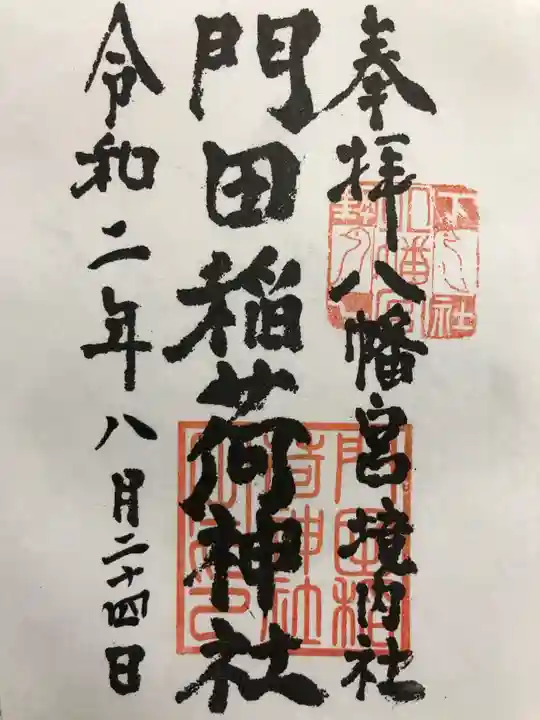 奉拝八幡宮境内社
門田稲荷神社
令和二年八月二十四日